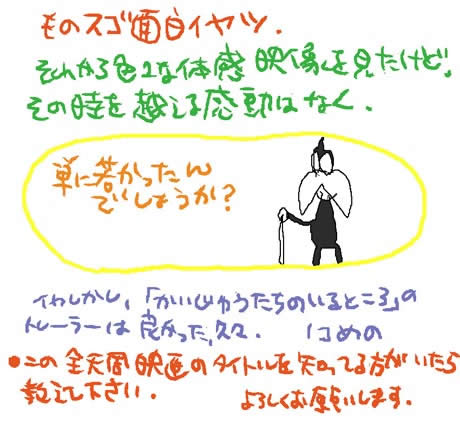 ものスゴ面白イヤツ.
それから色々な体感映像を見たけど,
その時を越える感動はなく.
単に若かったん
でしょうか?
しかし,「かいじゅうたちのいるところ」の
トレーラーは良かった,久々.
●この全天周映画のタイトルを知ってる方がいたら
教えて下さい. よろしくお願いします.